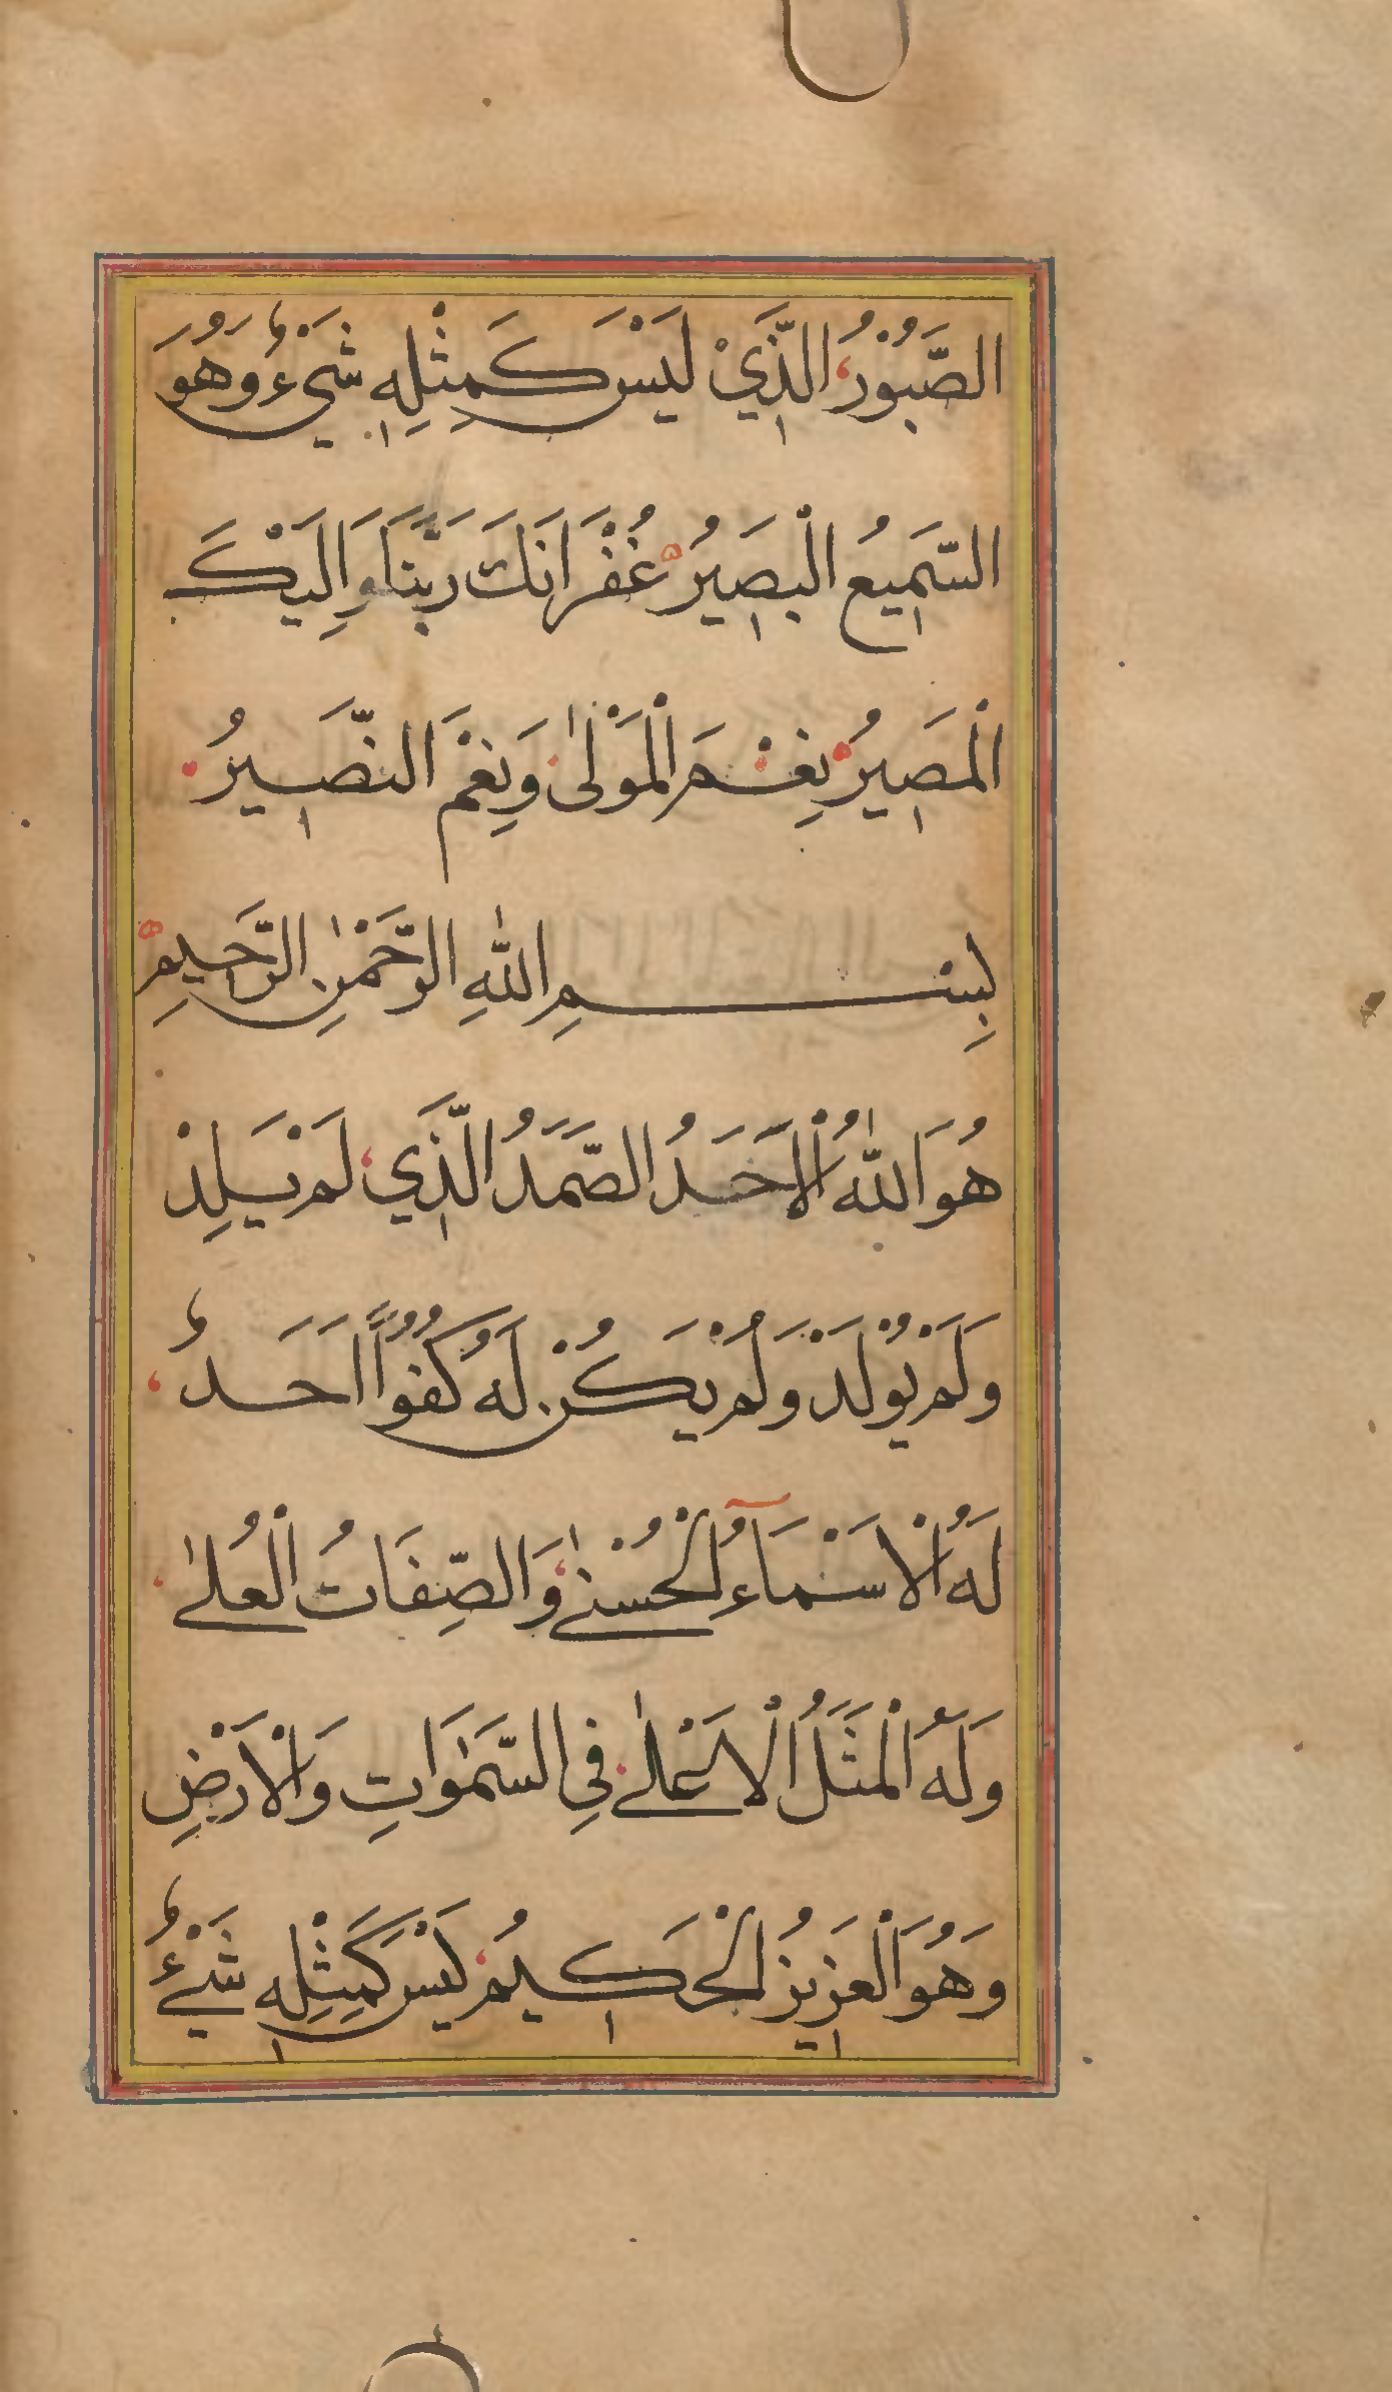 الصَّبُوْرُ الَّذِيْ لَيْسَ كَمِثْلِهِ شَيْءٌ وَهُوَ
السَّمِيعُ الْبَصِيرُ غُفْرَانَكَ رَبَّنَا وَاِلَيْكَ
الْمَصِيرُ نِعْمَ الْمَوْلٰى وَنِعْمَ النَّصِيرُ
بِسْمِ اللّٰهِ الرَّحْمٰنِ الرَّحِيمِ
هُوَ اللّٰهُ الْاَحَدُ الصَّمَدُ الَّذِي لَمْ يَلِدْ
وَلَمْ يُوْلَدْ وَلَمْ يَكُنْ لَهُ كُفُوًا اَحَدٌ
لَهُ الْاَسْمَاءُ الْحُسْنٰى وَالصِّفَاتُ الْعُلٰى
وَلَهُ الْمَثَلُ الْاَعْلٰى فِي السَّمٰوَاتِ وَالْاَرْضِ
وَهُوَ الْعَزِيزُ الْحَكِيمُ لَيْسَ كَمِثْلِهِ شَيْءٌ